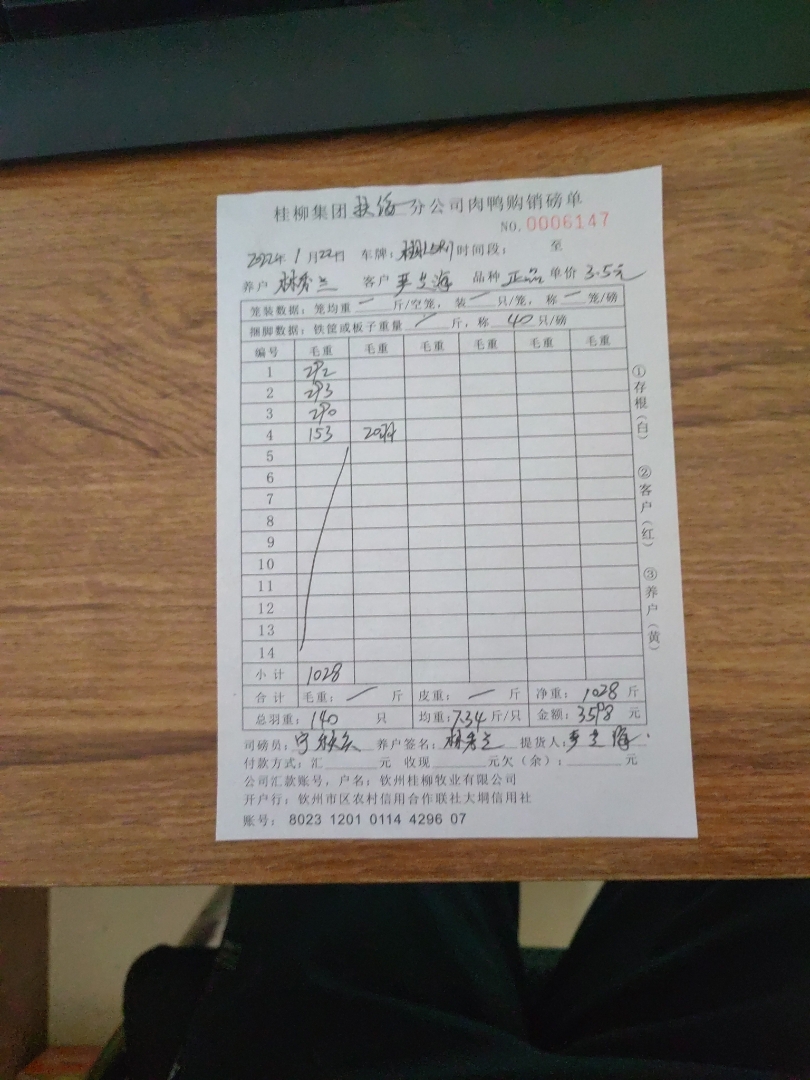 桂柳集团 分公司肉鸭购销磅单
NO. 0006147
2022年 1月22日 车牌: 时间段: 至
养户 林秀兰 客户 海 品种 正品 单价 3.5元
笼装数据: 笼均重 — 斤/空笼, 装 — 只/笼, 称 — 笼/磅
捆脚数据: 铁筐或板子重量 / 斤, 称 40 只/磅
编号 毛重 毛重 毛重 毛重 毛重 毛重
1 292
2 293
3 290
4 153 20羽
5
6
7
8
9
10
11
12
13
14
小计 1028
合计 毛重: — 斤 皮重: — 斤 净重: 1028 斤
总羽重: 140 只 均重: 7.34 斤/只 金额: 3598 元
司磅员: 养户签名: 林秀兰 提货人: 海
付款方式: 汇 元 收现 元欠(余): 元
公司汇款账号, 户名: 钦州桂柳牧业有限公司
开户行: 钦州市区农村信用合作联社大垌信用社
账号: 8023 1201 0114 4296 07
①存根(白)
②客户(红)
③养户(黄)